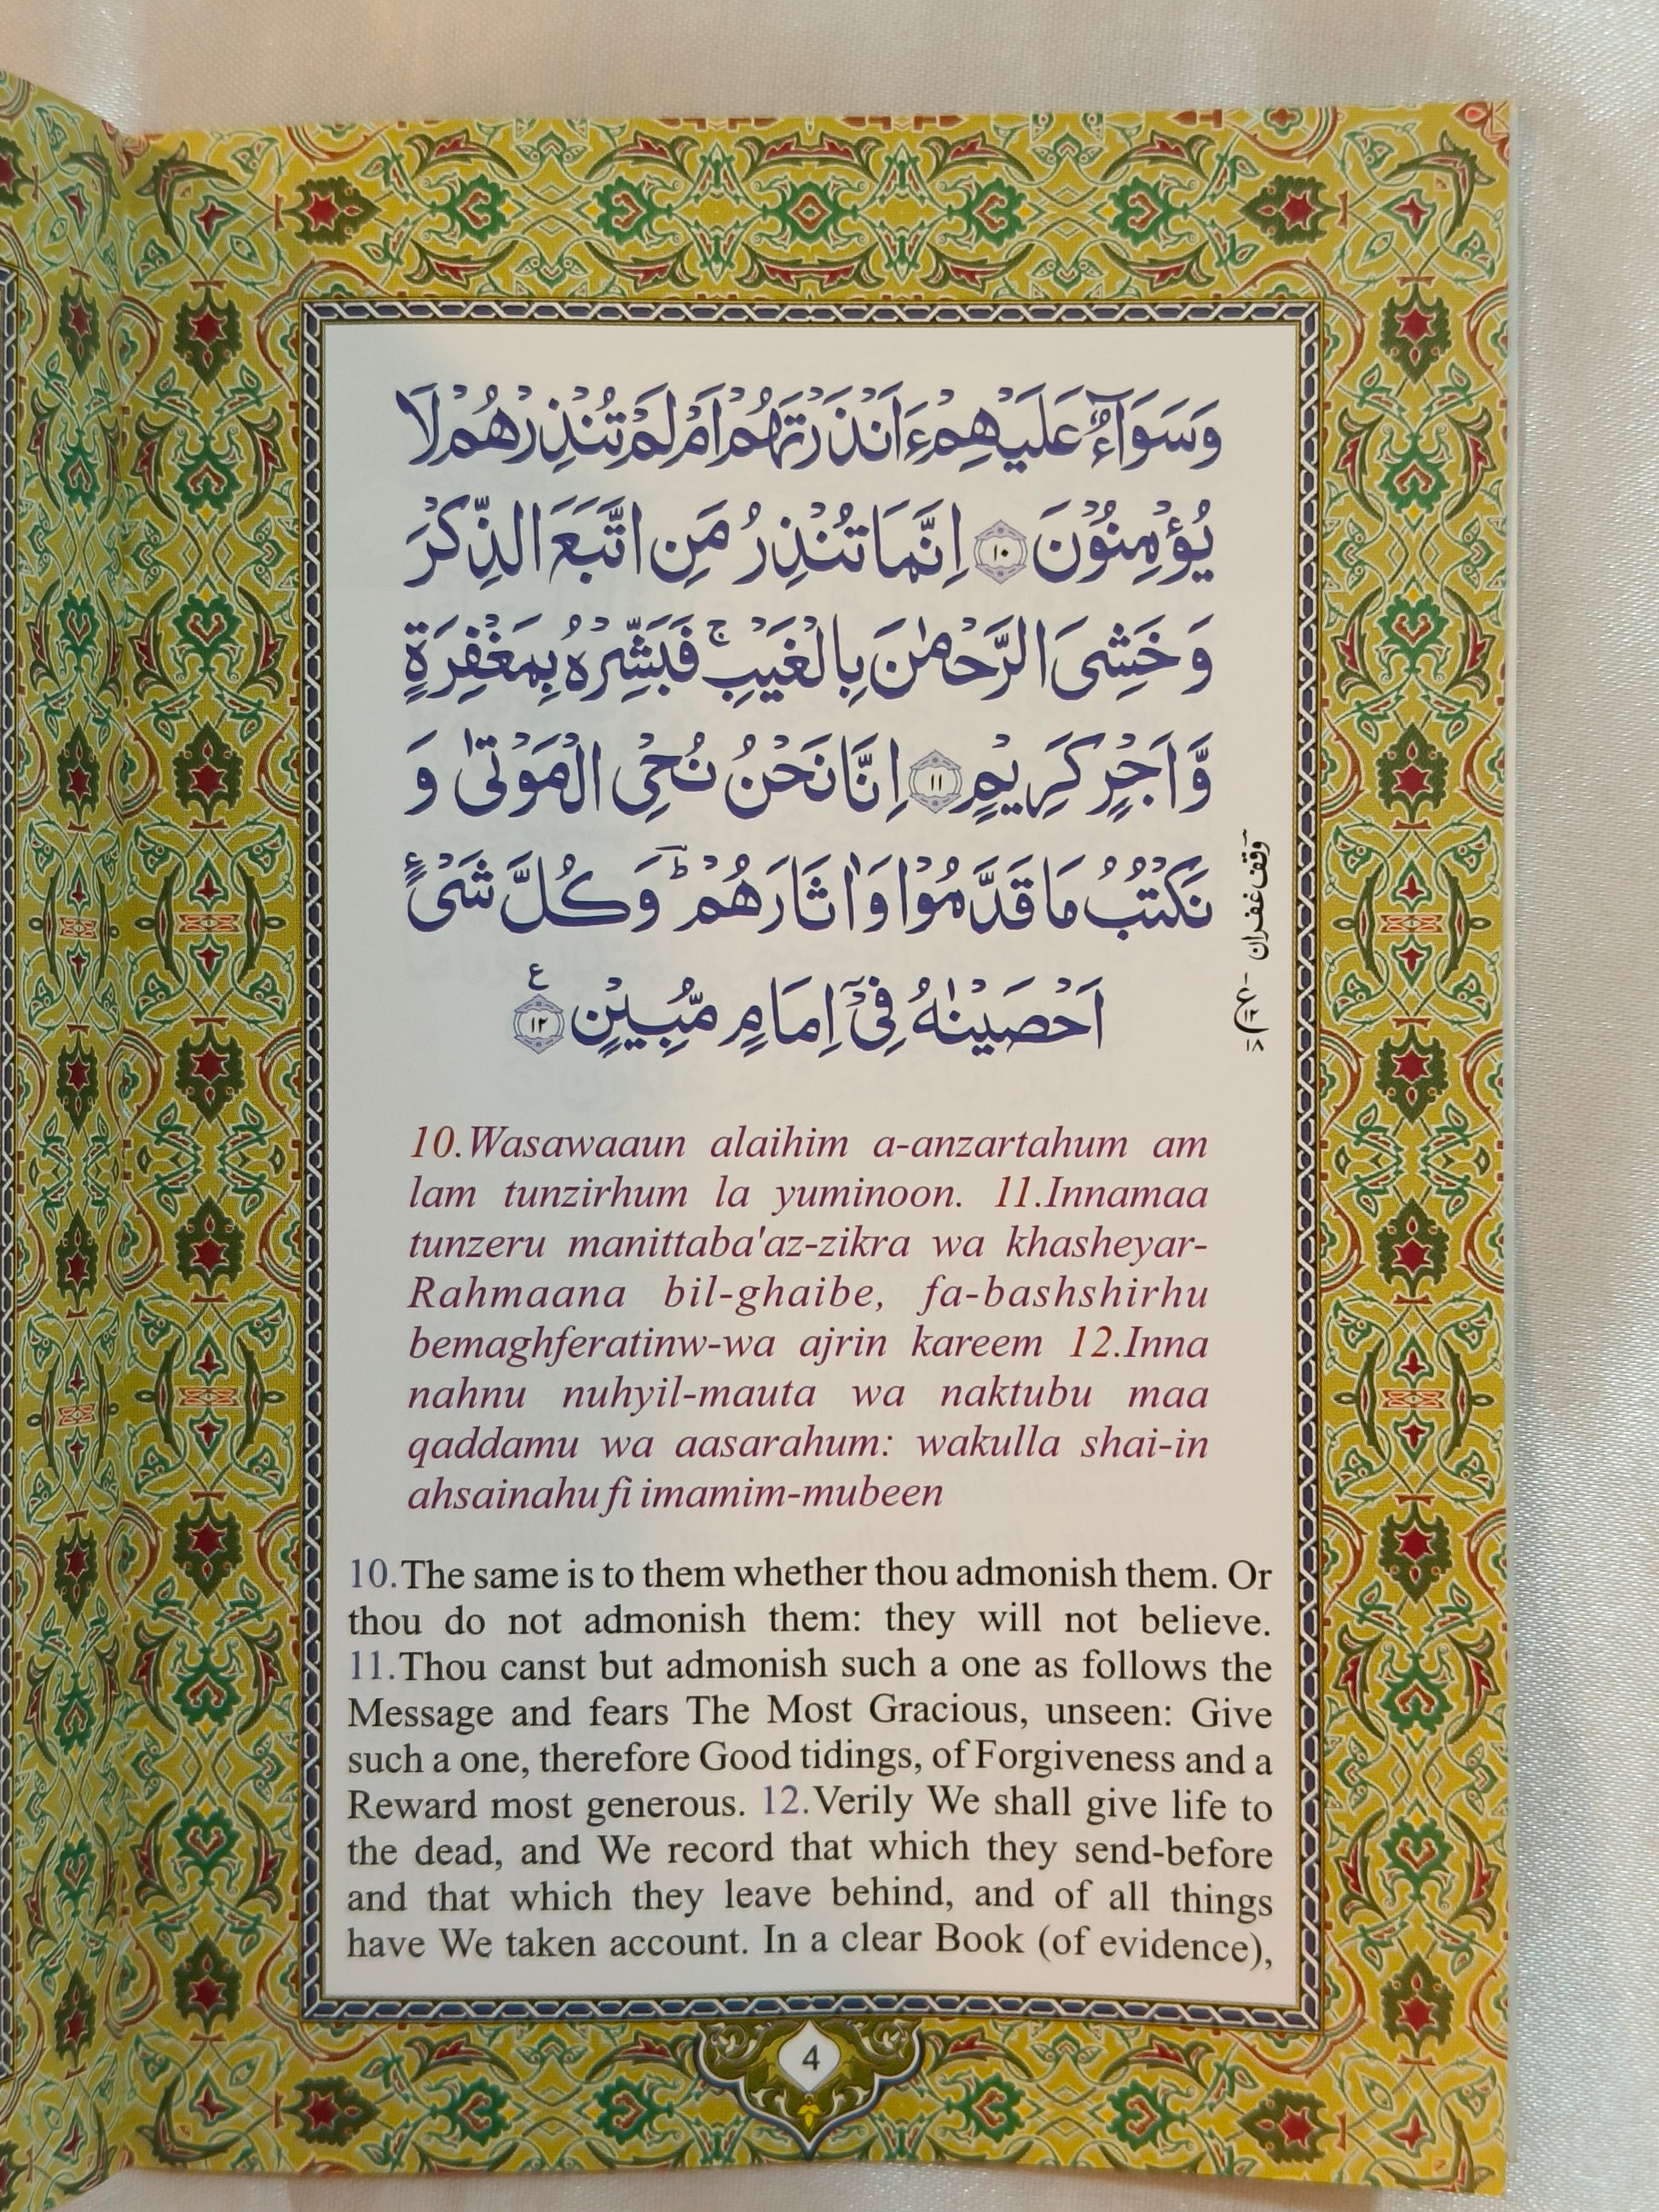 وَسَوَآءٌ عَلَيۡهِمۡ ءَاَنۡذَرۡتَهُمۡ اَمۡ لَمۡ تُنۡذِرۡهُمۡ لَا
يُؤۡمِنُوۡنَ ١٠ اِنَّمَا تُنۡذِرُ مَنِ اتَّبَعَ الذِّكۡرَ
وَخَشِىَ الرَّحۡمٰنَ بِالۡغَيۡبِ‌ۚ فَبَشِّرۡهُ بِمَغۡفِرَةٍ
وَّاَجۡرٍ كَرِيۡمٍ ١١ اِنَّا نَحۡنُ نُحۡىِ الۡمَوۡتٰى وَ
نَكۡتُبُ مَا قَدَّمُوۡا وَاٰثَارَهُمۡؕؔ وَكُلَّ شَىۡءٍ
اَحۡصَيۡنٰهُ فِىۡۤ اِمَامٍ مُّبِيۡنٍ ١٢ ع
وقف غفران
ع ١٢ ١٨
10.Wasawaaun alaihim a-anzartahum am
lam tunzirhum la yuminoon. 11.Innamaa
tunzeru manittaba'az-zikra wa khasheyar-
Rahmaana bil-ghaibe, fa-bashshirhu
bemaghferatinw-wa ajrin kareem 12.Inna
nahnu nuhyil-mauta wa naktubu maa
qaddamu wa aasarahum: wakulla shai-in
ahsainahu fi imamim-mubeen
10.The same is to them whether thou admonish them. Or
thou do not admonish them: they will not believe.
11.Thou canst but admonish such a one as follows the
Message and fears The Most Gracious, unseen: Give
such a one, therefore Good tidings, of Forgiveness and a
Reward most generous. 12.Verily We shall give life to
the dead, and We record that which they send-before
and that which they leave behind, and of all things
have We taken account. In a clear Book (of evidence),
4